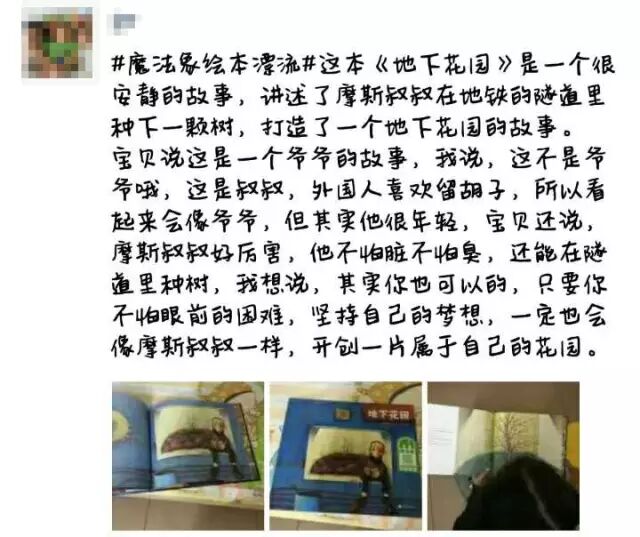 #魔法象绘本漂流#这本《地下花园》是一个很
安静的故事，讲述了摩斯叔叔在地铁的隧道里
种下一颗树，打造了一个地下花园的故事。
宝贝说这是一个爷爷的故事，我说，这不是爷
爷哦，这是叔叔，外国人喜欢留胡子，所以看
起来会像爷爷，但其实他很年轻，宝贝还说，
摩斯叔叔好厉害，他不怕脏不怕臭，还能在隧
道里种树，我想说，其实你也可以的，只要你
不怕眼前的困难，坚持自己的梦想，一定也会
像摩斯叔叔一样，开创一片属于自己的花园。
地下花园